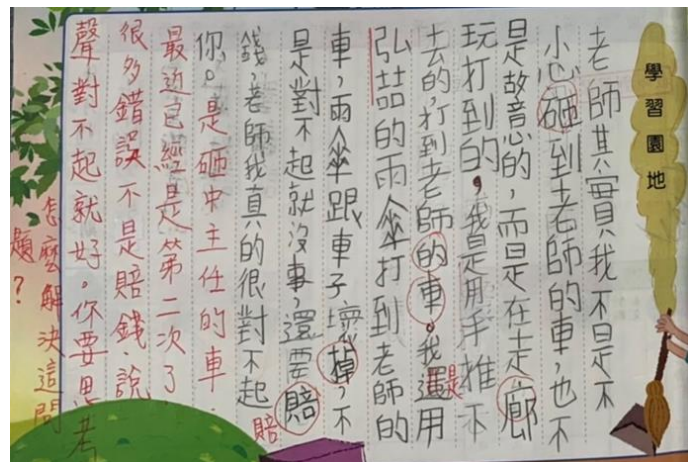 學習園地
老師其實我不是不
小心砸到老師的車,也不
是故意的,而是在走廊
玩打到的,我是用手推不
去的,打到老師的車。我還用
是
弘喆的雨傘打到老師的
車,雨傘跟車子壞掉,不
是對不起就沒事,還要賠
賠
錢,老師我真的很對不起
你。是砸中主任的車.
最近已經是第二次了
很多錯誤不是賠錢.說
聲對不起就好。你要思考
怎麼解決這問
題?